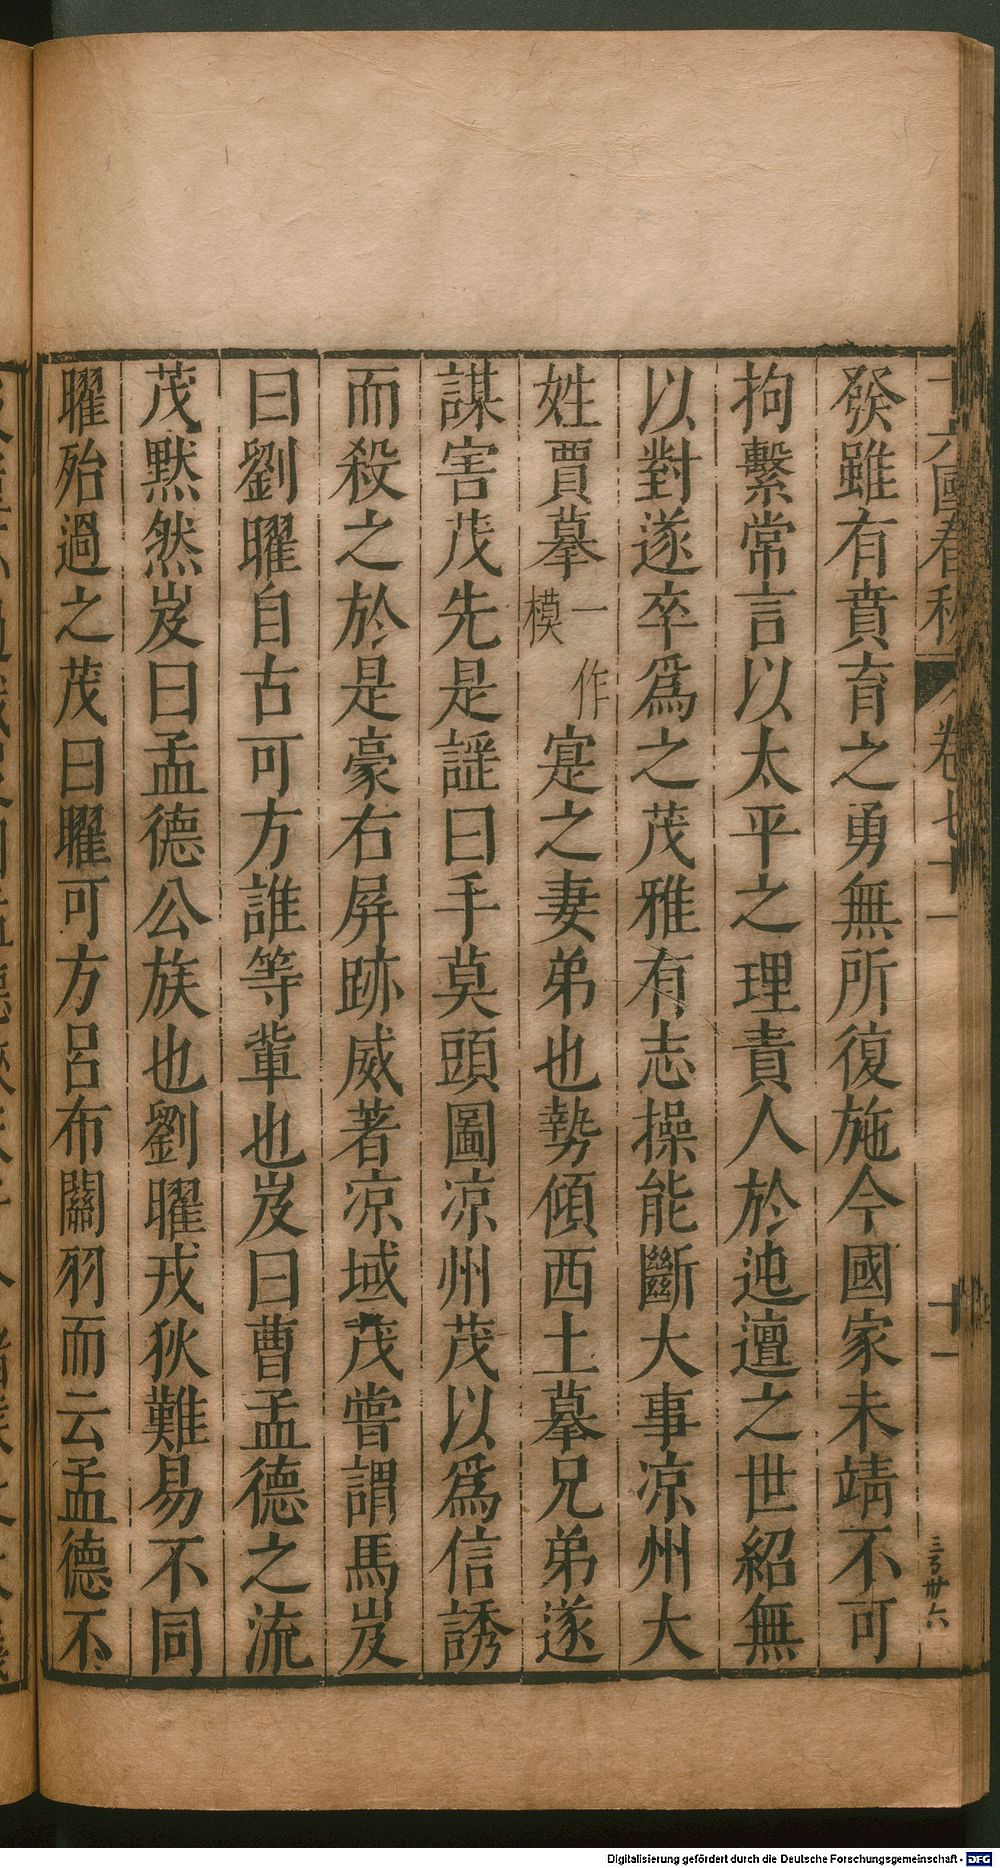 十六國春秋 卷七十一 十一
三亐卅六
發雖有賁育之勇無所復施今國家未靖不可
拘繫常言以太平之理責人於迍邅之世紹無
以對遂卒爲之茂雅有志操能斷大事凉州大
姓賈摹一作模寔之妻弟也勢傾西土摹兄弟遂
謀害茂先是謡曰手莫頭圖凉州茂以爲信誘
而殺之於是豪右屏跡威著凉域茂嘗謂馬岌
曰劉曜自古可方誰等軰也岌曰曹孟德之流
茂默然岌曰孟德公族也劉曜戎狄難易不同
曜殆過之茂曰曜可方呂布關羽而云孟德不
Digitalisierung gefördert durch die Deutsche Forschungsgemeinschaft - DFG